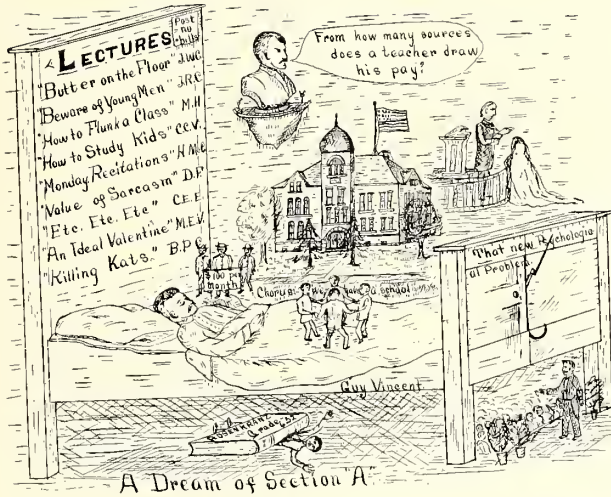 LECTURES
Post
no
bills
"Butter on the Floor" J.W.C.
"Beware of Young Men" J.R.C.
"How to Flunk a Class" M.H.
"How to Study Kids" C.C.V.
"Monday Recitations"
"Value of Sarcasm" D.F.
"Etc. Etc. Etc" C.E.E.
"An Ideal Valentine" M.E.V.
"Killing Kats." B.P.
From how many sources
does a teacher draw
his pay?
$100 per
month
Chorus: We have a school
That new Psychologic
al Problem
Guy Vincent
ROSENKRANZ
A Dream of Section "A"